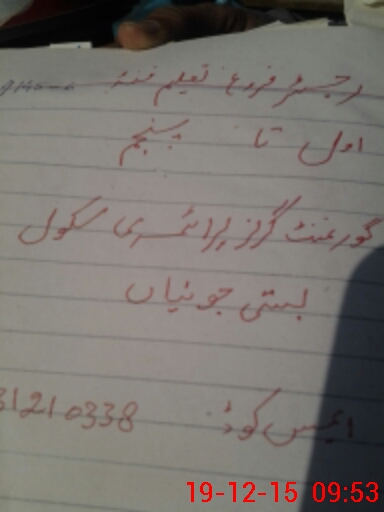 رجسٹر فروغ تعلیم فنڈ
اول تا پنجم
گورنمنٹ گرلز پرائمری سکول
بستی جونیاں
ایمس کوڈ: 31210338
19-12-15 09:53